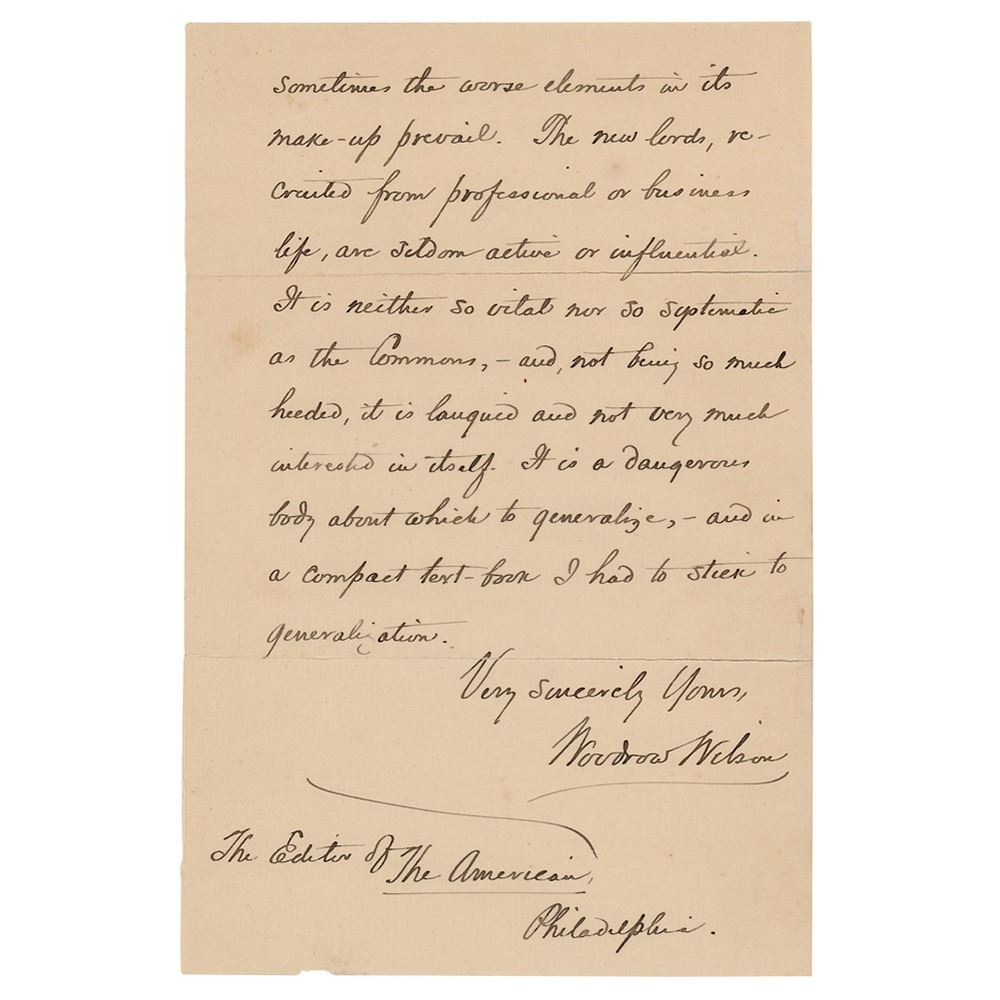 sometimes the worse elements in its
make-up prevail. The new lords, re-
cruited from professional or business
life, are seldom active or influential.
It is neither so vital nor so systematic
as the Commons, - and, not being so much
heeded, it is languid and not very much
interested in itself. It is a dangerous
body about which to generalize, - and in
a compact text-book I had to stick to
generalization.
Very sincerely Yours,
Woodrow Wilson
The Editor of The American,
Philadelphia.